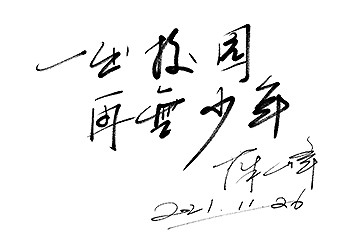 一出校园
再无少年
陈峰
2021.11.26